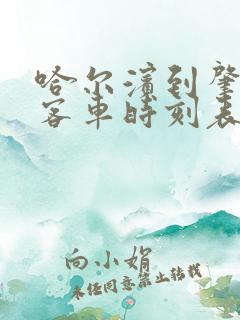 哈尔滨到肇
客车时刻表
向小娟
未经同意禁止转载